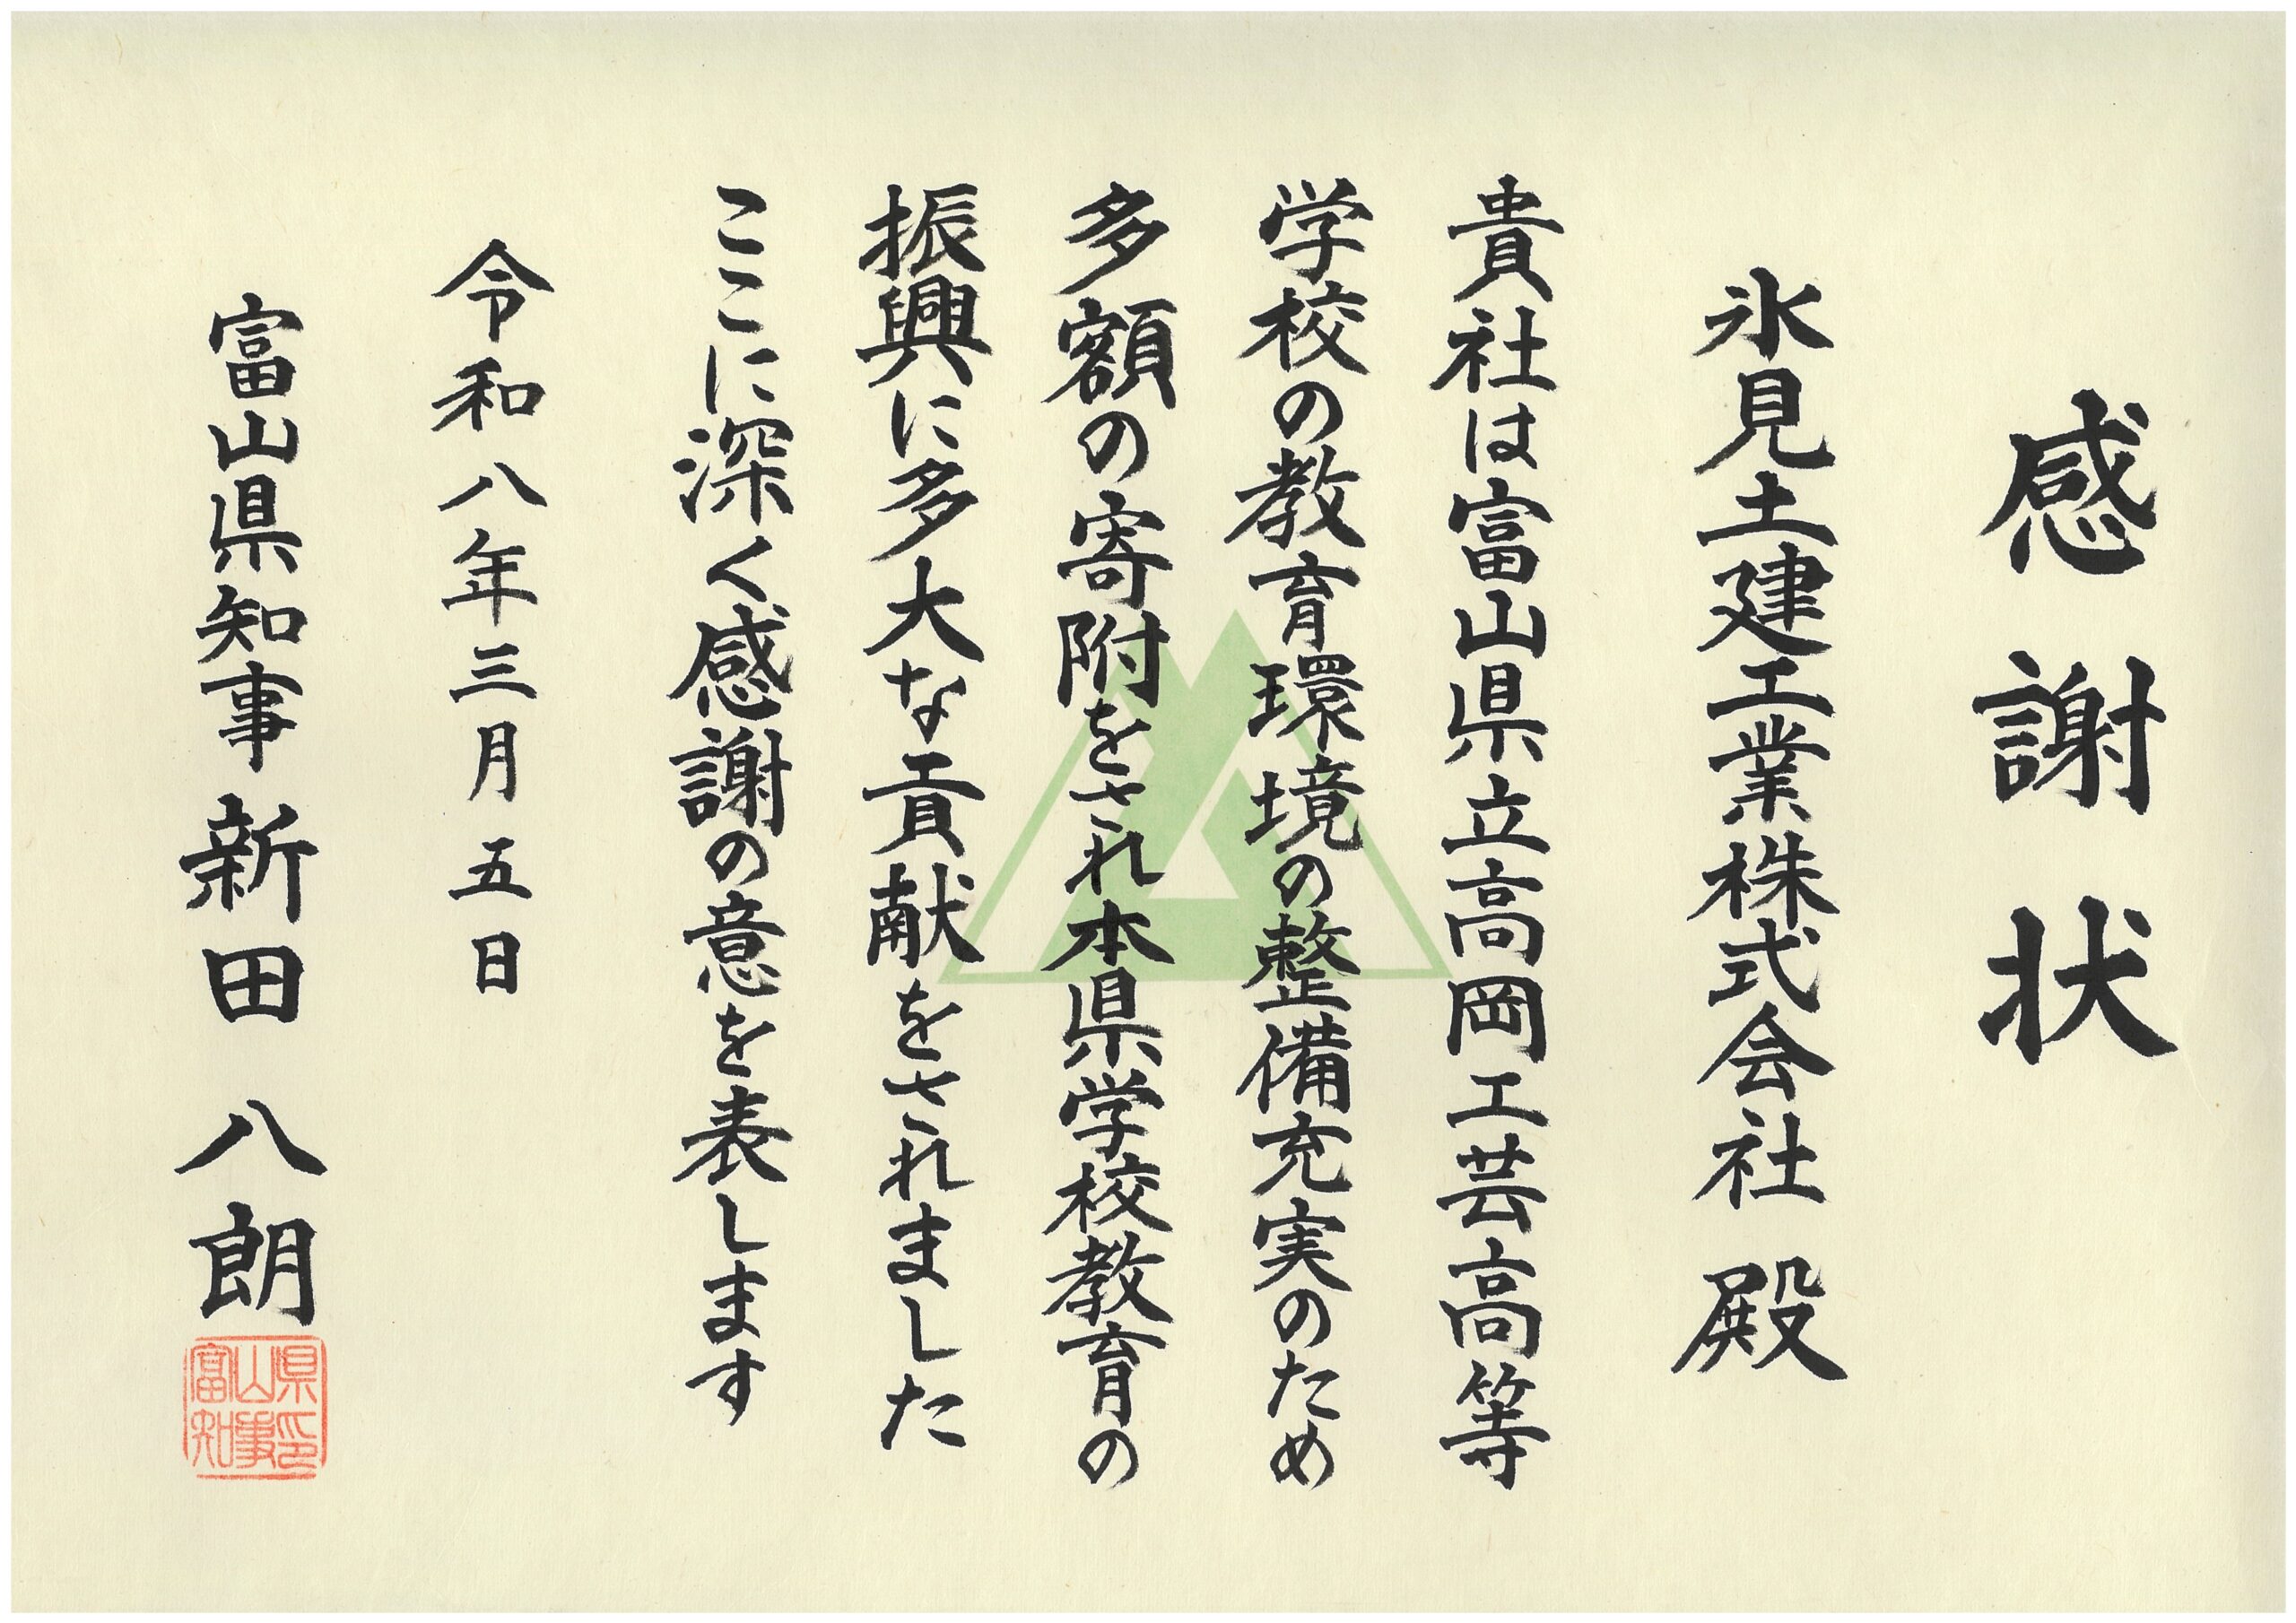 感謝状
氷見土建工業株式会社 殿
貴社は富山県立高岡工芸高等
学校の教育環境の整備充実のため
多額の寄附をされ本県学校教育の
振興に多大な貢献をされました
ここに深く感謝の意を表します
令和八年三月五日
富山県知事 新田八朗
富山県
知事印